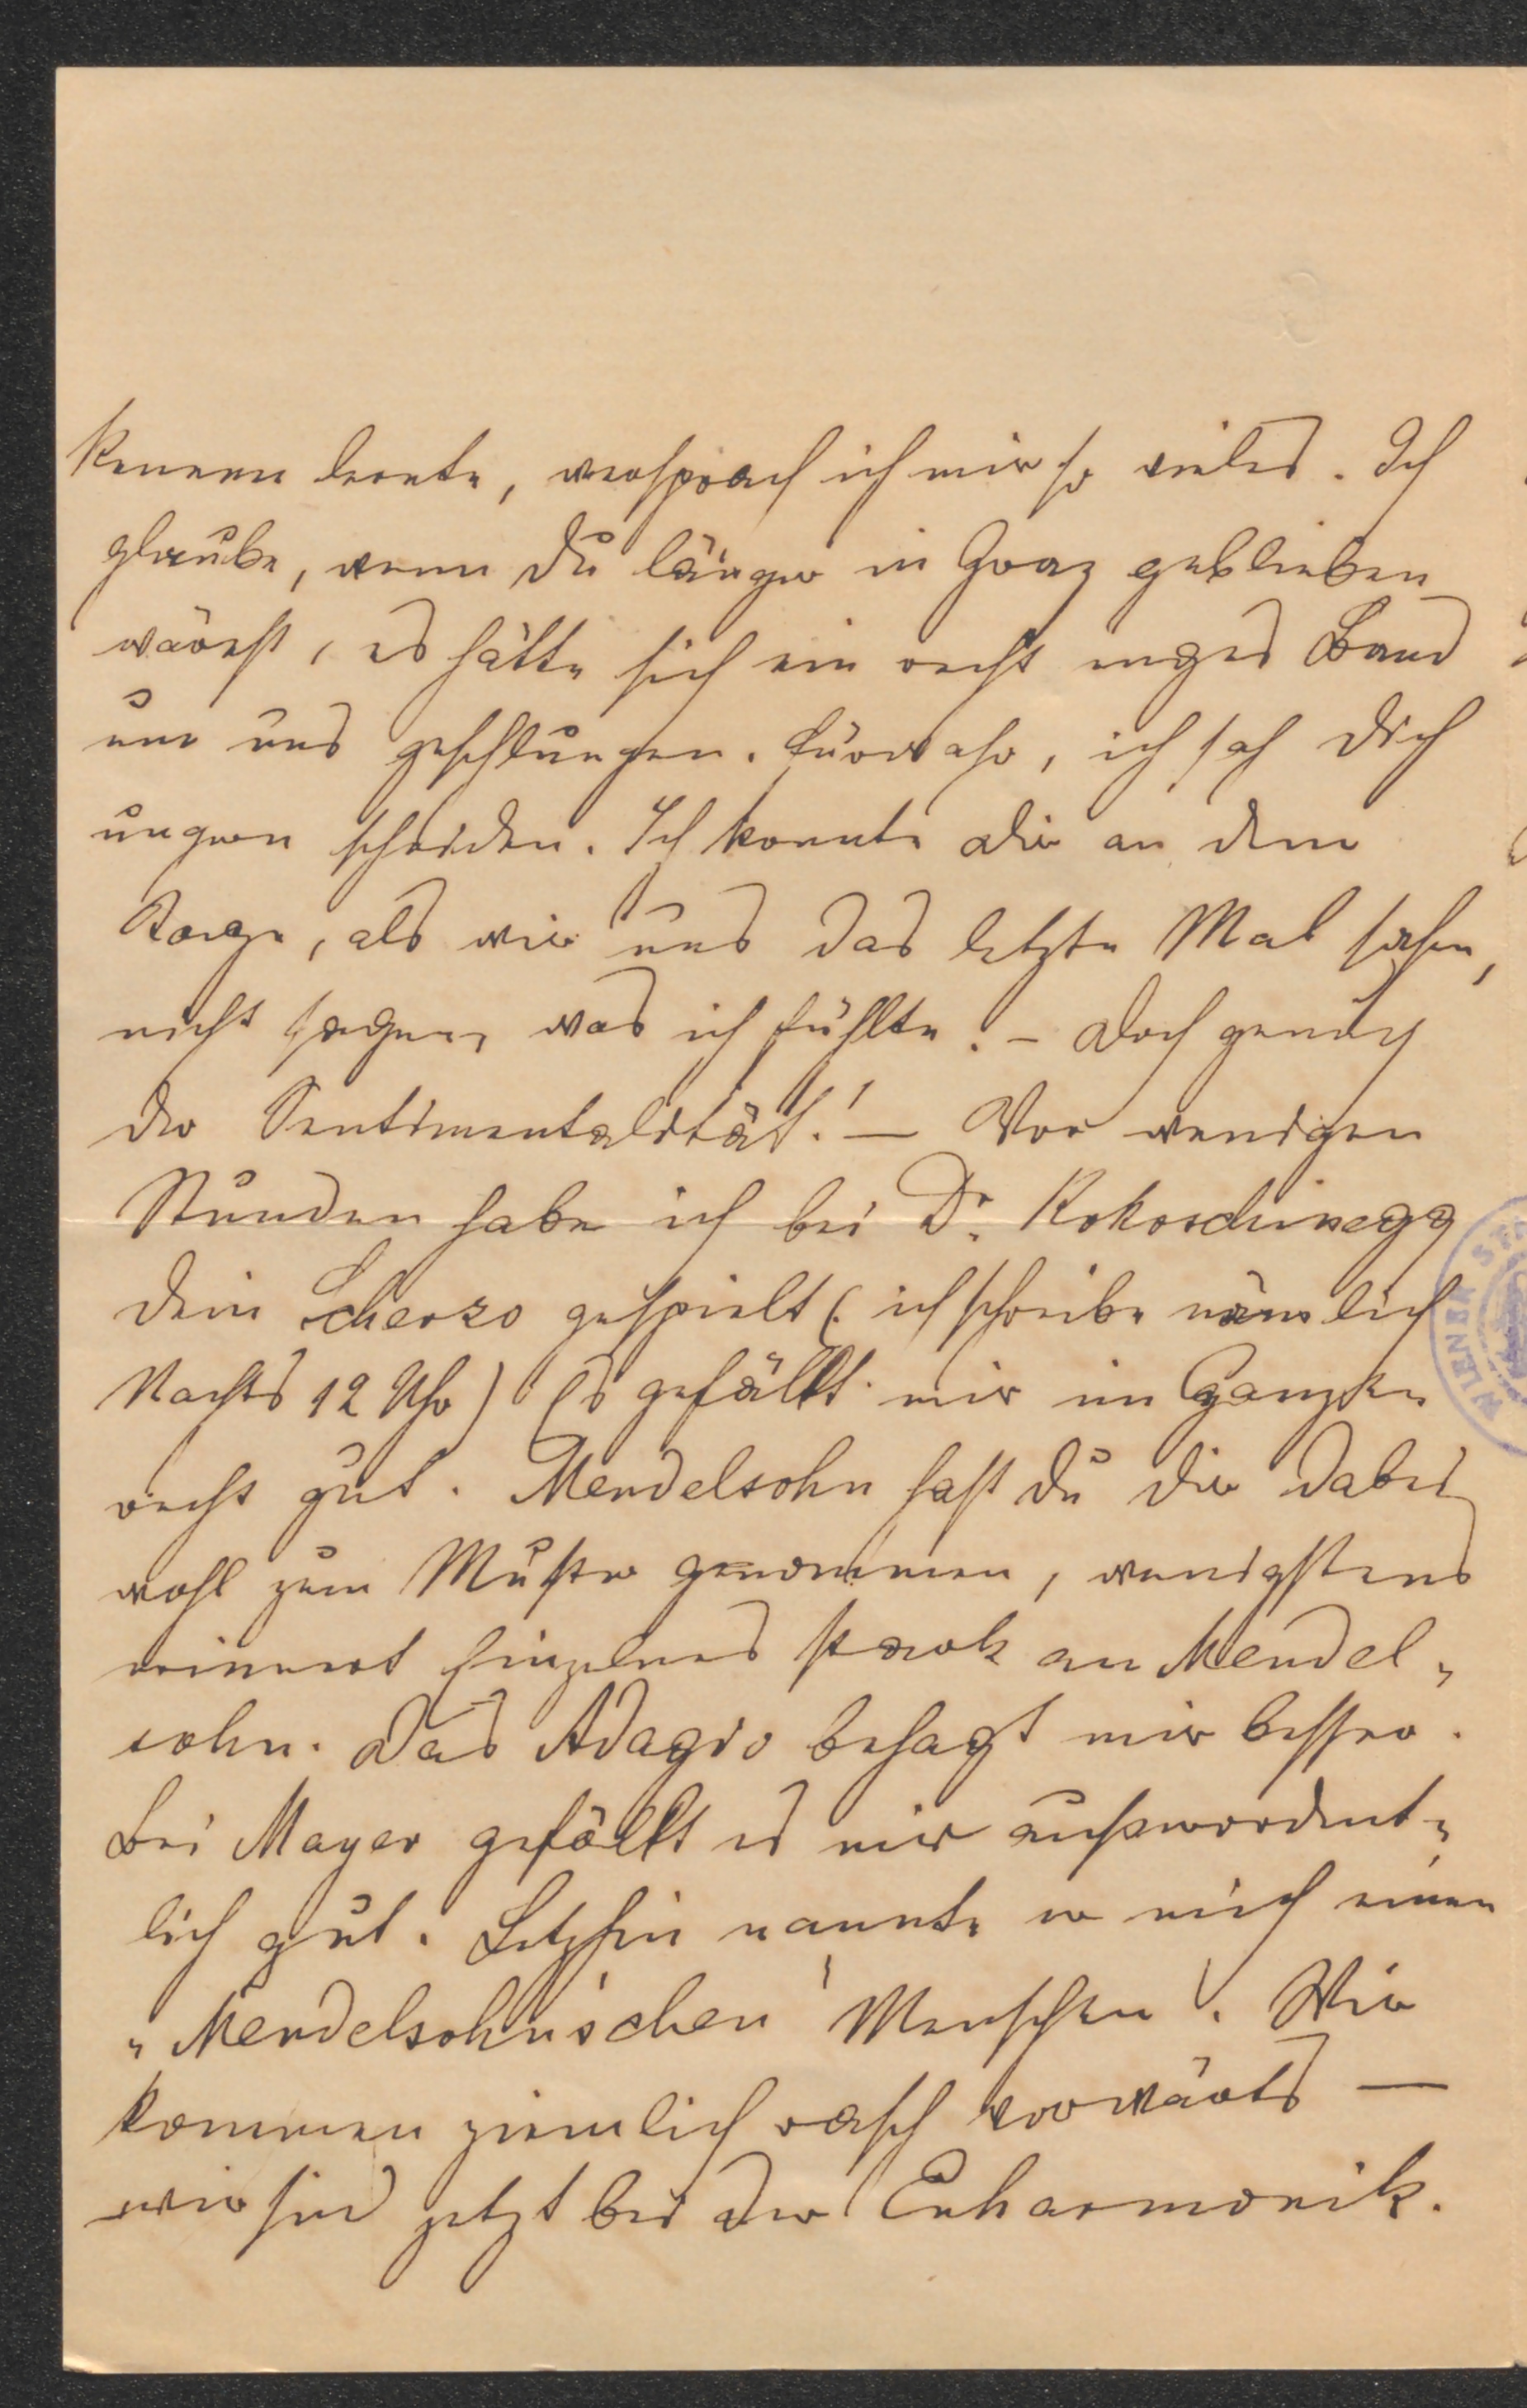 kennen lernte, versprach ich mir so vieles. Ich
glaube, wenn du länger in Graz geblieben
wärest, es hätte sich ein recht enges Band
um uns geschlungen. Fürwahr, ich sah dich
ungern scheiden. Ich konnte dir an dem
Tage, als wir uns das letzte Mal sahen,
nicht sagen, was ich fühlte. – Doch genug
der Sentimentalität! – Vor wenigen
Stunden habe ich bei Dr. Kokoschinegg
dein Scherzo gespielt (ich schreibe nämlich
Nachts 12 Uhr) Es gefällt mir im Ganzen
recht gut. Mendelsohn hast du dir dabei
wohl zum Muster genommen, wenigstens
erinnert Einzelnes stark an Mendel-
sohn. Das Adagio behagt mir besser.
Bei Mayer gefällt es mir außerordent-
lich gut. Letzhin nannte er mich einen
„Mendelsohn'schen Menschen". Wir
kommen ziemlich rasch vorwärts –
wir sind jetzt bei der Enharmonik.
WIENER ST